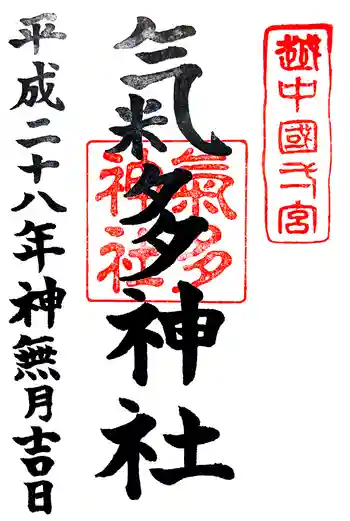 越中國一宮
氣多神社
氣多神社
平成二十八年神無月吉日